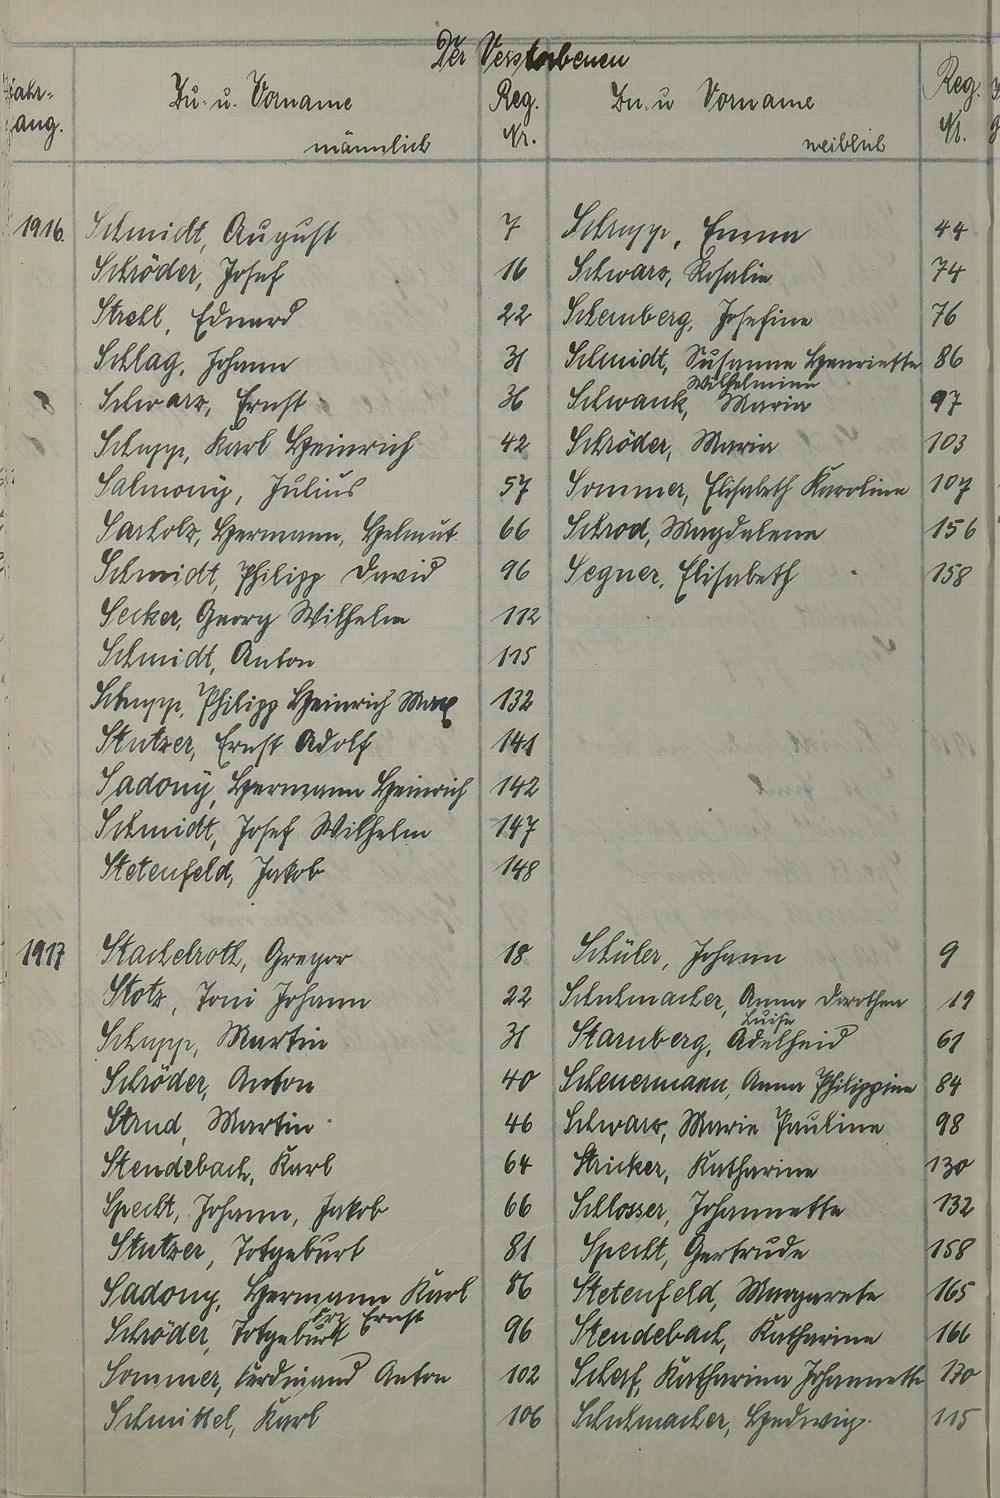 Der Verstorbenen
Jahr-
gang.
Zu- u. Vorname
männlich
Reg.
Nr.
Zu- u Vorname
weiblich
Reg.
Nr.
1916. Schmidt, August 7 Schupp, Emma 44
Schröder, Josef 16 Schwarz, Rosalie 74
Strehl, Eduard 22 Schemberg, Josefine 76
Schlag, Johann 31 Schmidt, Susanne Henriette 86
Wilhelmine
Schwarz, Ernst 36 Schwank, Maria 97
Schupp, Karl Heinrich 42 Schröder, Maria 103
Salmony, Julius 57 Sommer, Elisabeth Karoline 107
Sarholz, Hermann, Helmut 66 Schrod, Magdalena 156
Schmidt, Philipp David 96 Segner, Elisabeth 158
Secker, Georg Wilhelm 112
Schmidt, Anton 115
Schupp, Philipp Heinrich Max 132
Stutzer, Ernst Adolf 141
Sadony, Hermann Heinrich 142
Schmidt, Josef Wilhelm 147
Stetenfeld, Jakob 148
1917 Stachelroth, Gregor 18 Schüler, Johann 9
Stotz, Toni Johann 22 Schuhmacher, Anna Dorothea 19
Luise
Schupp, Martin 31 Starnberg, Adelheid 61
Schröder, Anton 40 Scheuermann, Anna Philippine 84
Strud, Martin 46 Schwarz, Marie Pauline 98
Stendebach, Karl 64 Stricker, Katharine 130
Specht, Johann, Jakob 66 Schlosser, Johannette 132
Stutzer, Totgeburt 81 Specht, Gertrude 158
Sadony, Hermann Karl 86 Stetenfeld, Margarete 165
Ernst
Schröder, Totgeburt 96 Stendebach, Katharine 166
Sommer, Ferdinand Anton 102 Scherf, Katharina Johannette 170
Schmittel, Karl 106 Schuhmacher, Hedwig. 115